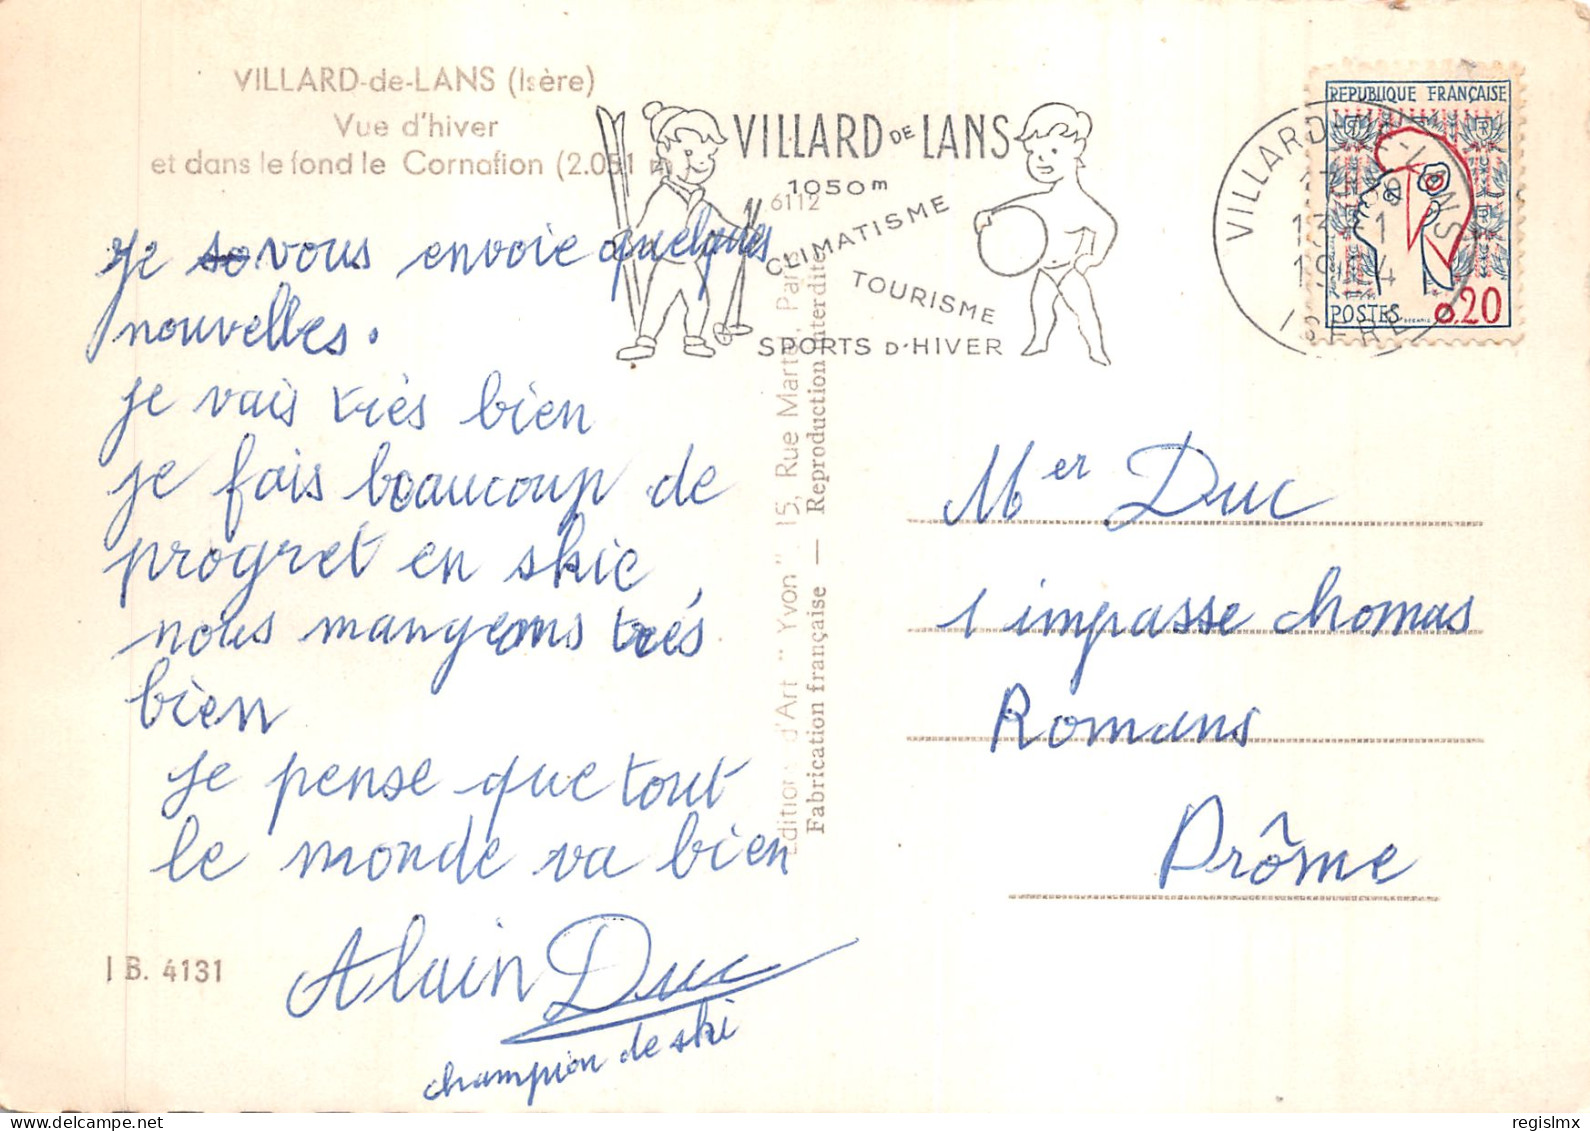 VILLARD-de-LANS (Isère)
Vue d'hiver
et dans le fond le Cornafion (2.051 m)
6112
VILLARD DE LANS
1050m
CLIMATISME
TOURISME
SPORTS D'HIVER
VILLARD-DE-LANS
ISERE
REPUBLIQUE FRANÇAISE
POSTES
0,20
je vous envoie quelques
nouvelles.
je vais très bien
je fais beaucoup de
progret en skie
nous mangeons très
bien
je pense que tout
le monde va bien
Alain Duc
champion de ski
I B. 4131
Editions d'Art "Yvon", 15, Rue Martel, Paris
Fabrication française — Reproduction interdite
Mer Duc
1 impasse chomas
Romans
Drôme
regisImx